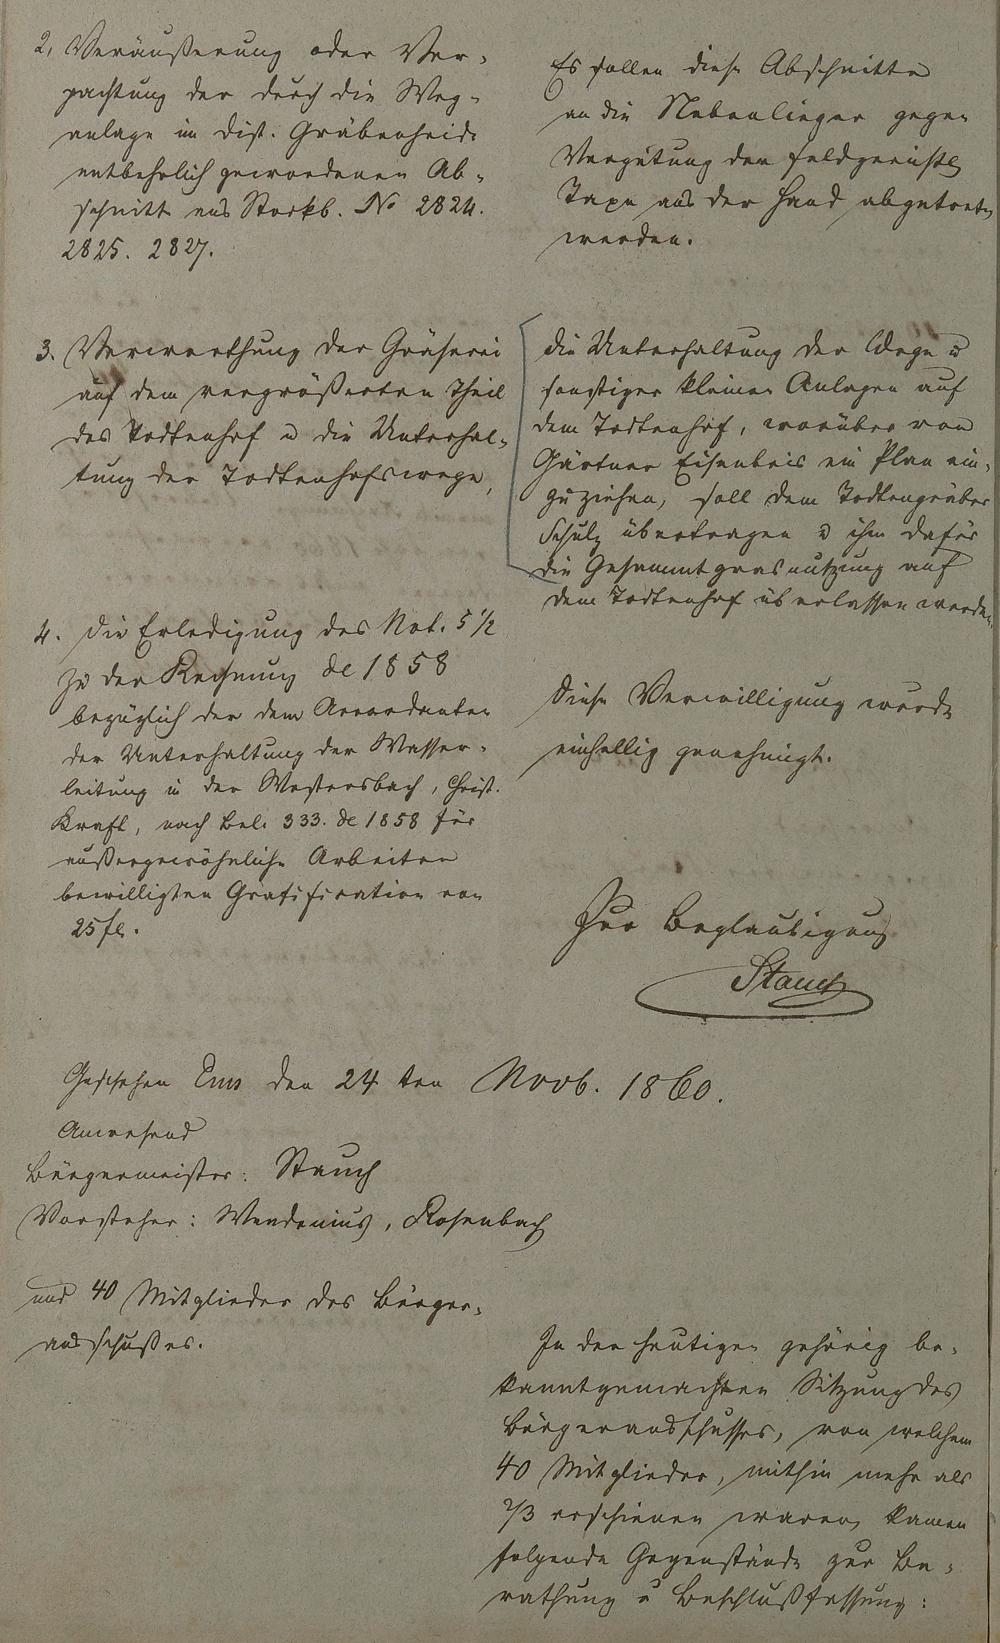 2, Veräußerung oder Ver-
pachtung der durch die Weg-
anlage im Dist. Gräbenheide
entbehrlich gewordenen Ab-
schnitte aus Stockb. No 2824.
2825. 2827.
Es sollen diese Abschnitte
an die Nebenlieger gegen
Vergütung der feldgerichtl
Taxe aus der Hand abgetreten
werden.
3. Verwerthung der Gräserei
auf dem vergrößerten Theil
des Todtenhof u die Unterhal-
tung der Todtenhofswege,
die Unterhaltung der Wege u
sonstiger kleiner Anlagen auf
dem Todtenhof, worüber von
Gärtner Eisenbeis ein Plan ein-
zuziehen, soll dem Todtengräber
Schulz übertragen u ihm dafür
die Gesammtgrasnutzung auf
dem Todtenhof überlassen werden.
4. die Erledigung des Not. 5 1/2
zu der Rechnung de 1858
bezüglich der dem Accordanten
der Unterhaltung der Wasser-
leitung in der Westersbach, Christ.
Kraft, nach Bel. 333. de 1858 für
außergewöhnliche Arbeiten
bewilligten Gratification von
25 fl.
Diese Verwilligung wurde
einhellig genehmigt.
Zur Beglaubigung
Stauch
Geschehen Ems den 24 ten Novb. 1860.
Anwesend
Bürgermeister: Stauch
Vorsteher: Wendenius, Rosenbach
und 40 Mitglieder des Bürger-
ausschußes.
In der heutigen gehörig be-
kanntgemachten Sitzung des
Bürgerausschusses, von welchem
40 Mitglieder, mithin mehr als
2/3 erschienen waren, kamen
folgende Gegenstände zur Be-
rathung u Beschlußfassung: